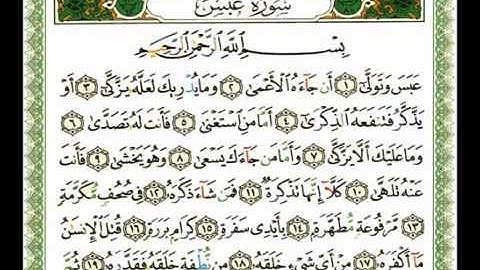 سُورَةُ عَبَسَ
بِسْمِ اللَّهِ الرَّحْمَٰنِ الرَّحِيمِ
عَبَسَ وَتَوَلَّىٰ ١ أَن جَاءَهُ الْأَعْمَىٰ ٢ وَمَا يُدْرِيكَ لَعَلَّهُ يَزَّكَّىٰ ٣ أَوْ
يَذَّكَّرُ فَتَنفَعَهُ الذِّكْرَىٰ ٤ أَمَّا مَنِ اسْتَغْنَىٰ ٥ فَأَنتَ لَهُ تَصَدَّىٰ ٦
وَمَا عَلَيْكَ أَلَّا يَزَّكَّىٰ ٧ وَأَمَّا مَن جَاءَكَ يَسْعَىٰ ٨ وَهُوَ يَخْشَىٰ ٩ فَأَنتَ
عَنْهُ تَلَهَّىٰ ١٠ كَلَّا إِنَّهَا تَذْكِرَةٌ ١١ فَمَن شَاءَ ذَكَرَهُ ١٢ فِي صُحُفٍ مُّكَرَّمَةٍ
١٣ مَّرْفُوعَةٍ مُّطَهَّرَةٍ ١٤ بِأَيْدِي سَفَرَةٍ ١٥ كِرَامٍ بَرَرَةٍ ١٦ قُتِلَ الْإِنسَانُ
مَا أَكْفَرَهُ ١٧ مِنْ أَيِّ شَيْءٍ خَلَقَهُ ١٨ مِن نُّطْفَةٍ خَلَقَهُ فَقَدَّرَهُ ١٩ ثُمَّ